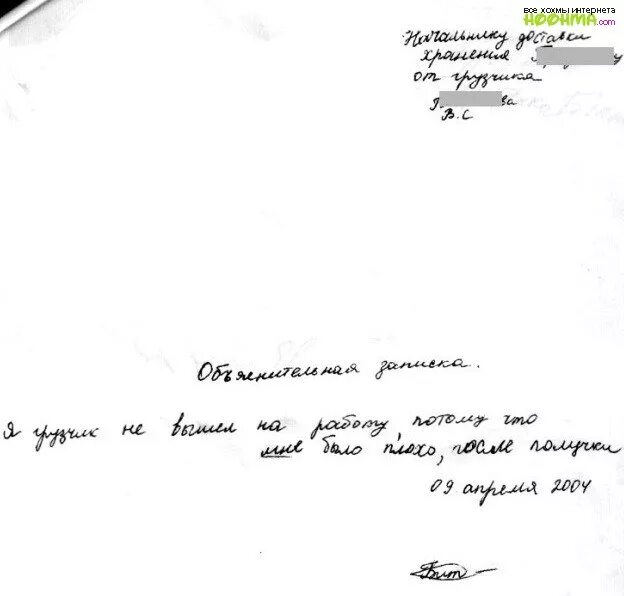 все хохмы интернета
HOOHMA.com
Начальнику доставки
хранения
от грузчика
ва
В.С
Объяснительная записка.
Я грузчик не вышел на работу, потому что
мне было плохо, после получки
09 апремя 2004